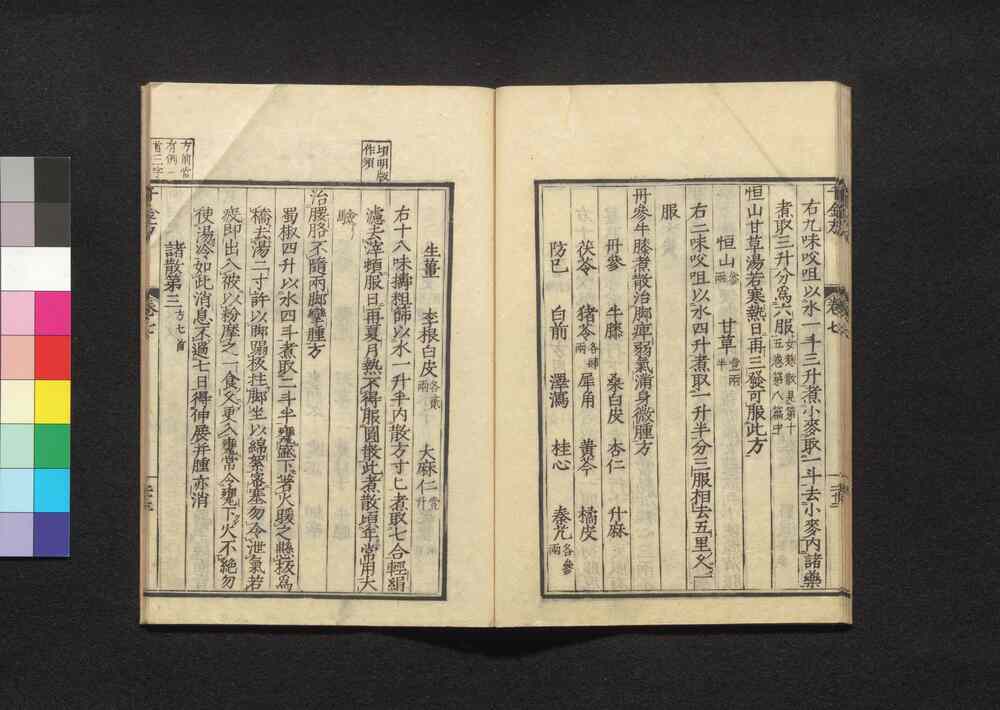 右九味㕮咀以水一斗三升煮小麥取一斗去小麥內諸藥
煮取三升分爲六服女麴散見第十五卷第八篇中
恒山甘草湯若寒熱日再三發可服此方
恒山叁兩 甘草壹兩半
右二味㕮咀以水四升煮取一升半分三服相去五里久一
服
丹參牛膝煮散治脚痺弱氣滿身微腫方
丹參 牛膝 桑白皮 杏仁 升麻
茯苓 猪苓各肆兩 犀角 黃芩 橘皮
防已 白前 澤瀉 桂心 秦艽各叁兩
千金方 卷七
生薑 李根白皮各貳兩 大麻仁壹升
右十八味擣粗篩以水一升半內散方寸匕煮取七合輕絹
濾去滓頓服日再夏月熱不得服圓散此煮散頃年常用大
驗
治腰胳不隨兩脚攣腫方
蜀椒四升以水四斗煮取二斗半甕盛下著火暖之懸板爲
橋去湯二寸許以脚踢板柱脚坐以綿絮密塞勿令泄氣若
疲即出入被以粉摩之一食久更入甕常令甕下火不絕勿
使湯冷如此消息不過七日得伸展并腫亦消
諸散第三方七首
頃明版
作須
方前當
有例一
首三字
千金方
卷七